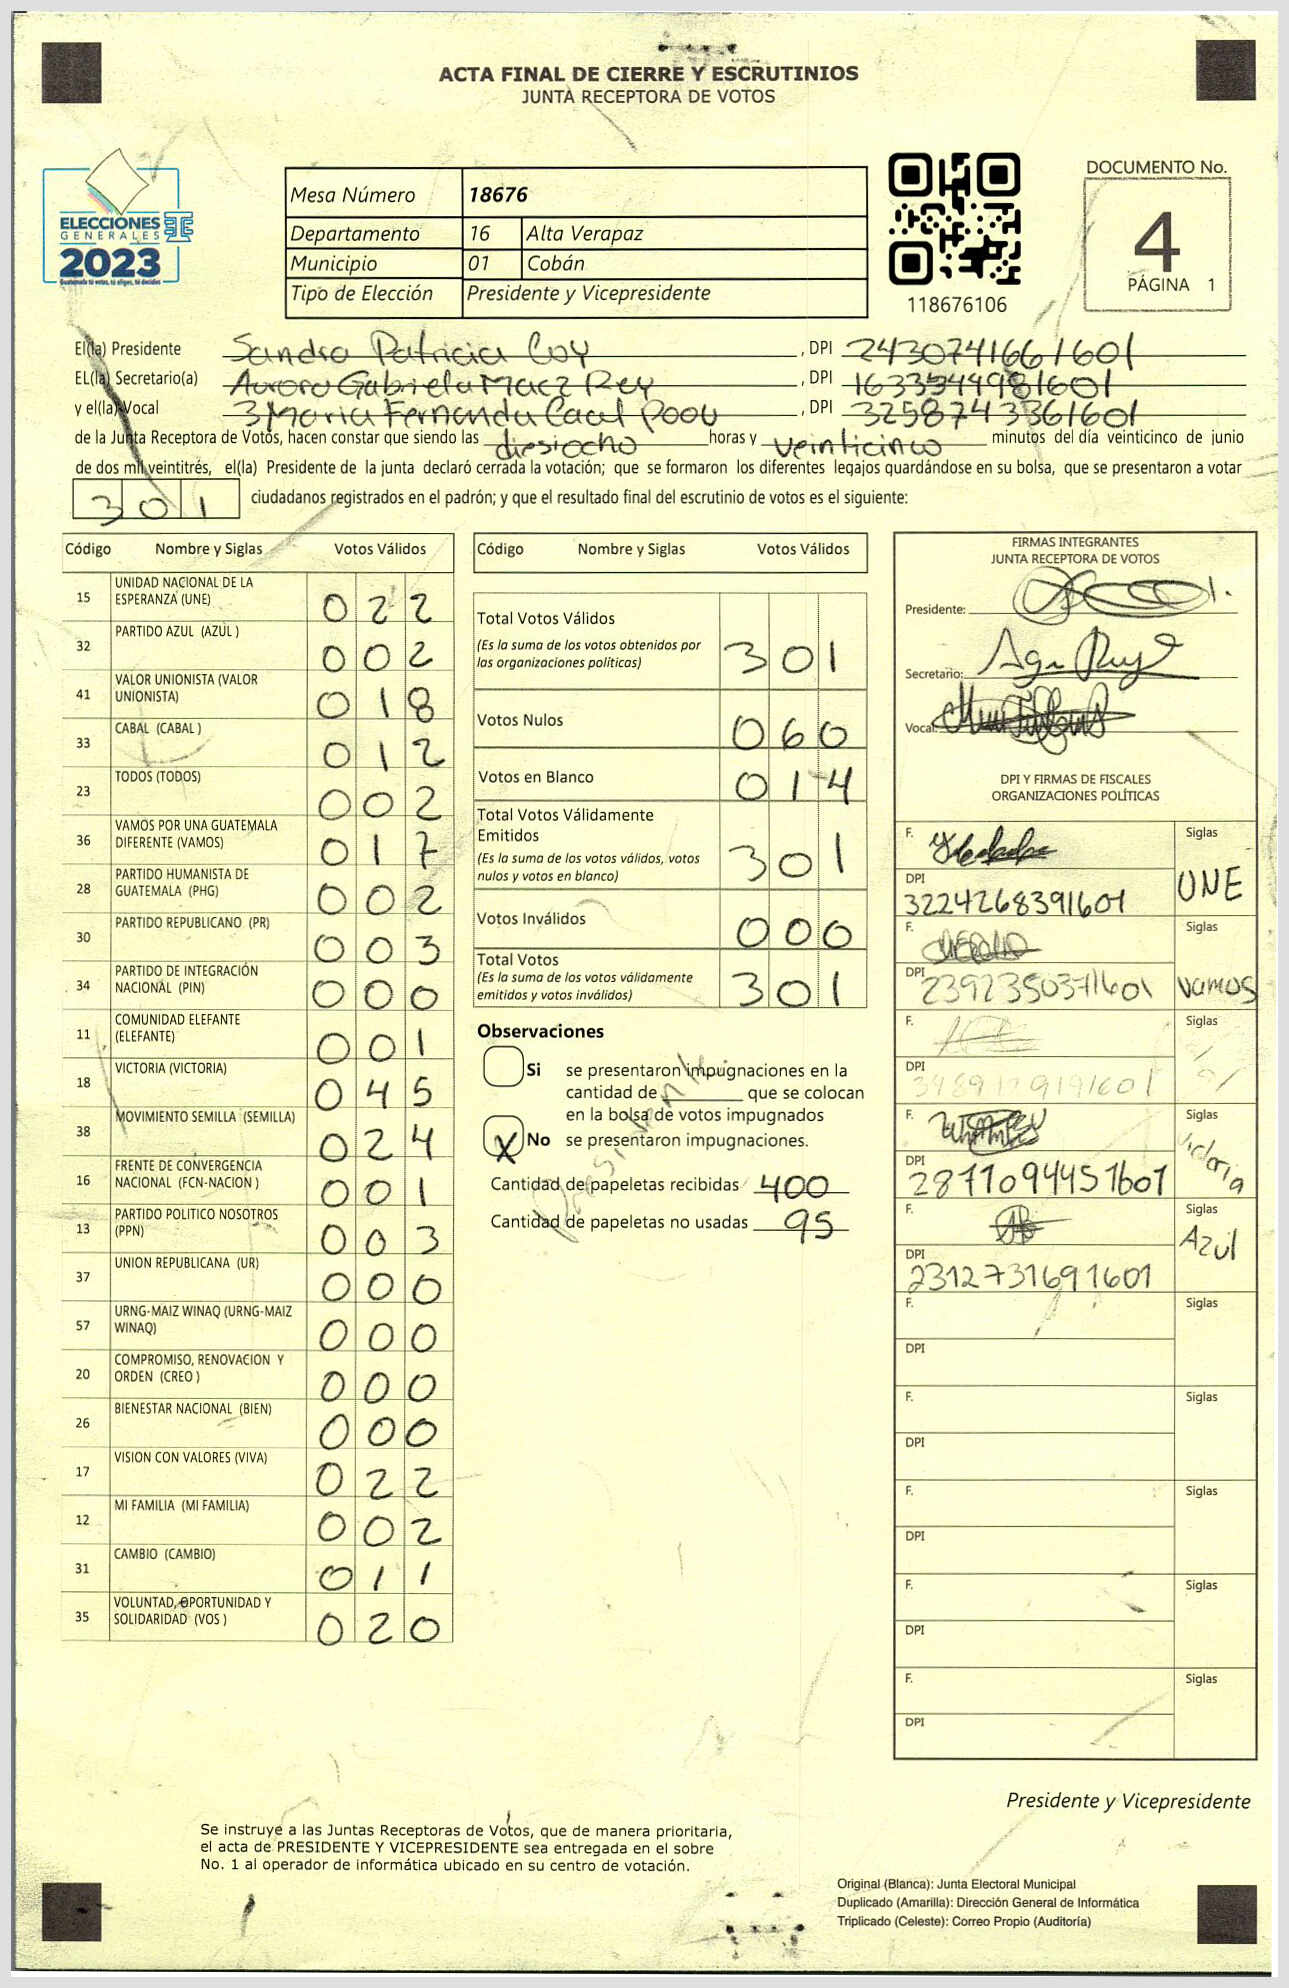 ACTA FINAL DE CIERRE Y ESCRUTINIOS
JUNTA RECEPTORA DE VOTOS
ELECCIONES
GENERALES
2023
Guatemala tú votas, tú eliges, tú decides
Mesa Número 18676
Departamento 16 Alta Verapaz
Municipio 01 Cobán
Tipo de Elección Presidente y Vicepresidente
118676106
DOCUMENTO No.
4
PÁGINA 1
El(la) Presidente Sandra Patricia Coy , DPI 2430741661601
EL(la) Secretario(a) Aurora Gabriela Macz Rey , DPI 1633544981601
y el(la) Vocal 3 Maria Fernanda Caal Poou , DPI 3258743361601
de la Junta Receptora de Votos, hacen constar que siendo las diesiocho horas y veinticinco minutos del día veinticinco de junio
de dos mil veintitrés, el(la) Presidente de la junta declaró cerrada la votación; que se formaron los diferentes legajos quardándose en su bolsa, que se presentaron a votar
301 ciudadanos registrados en el padrón; y que el resultado final del escrutinio de votos es el siguiente:
Código Nombre y Siglas Votos Válidos
15 UNIDAD NACIONAL DE LA ESPERANZA (UNE) 022
32 PARTIDO AZUL (AZUL ) 002
41 VALOR UNIONISTA (VALOR UNIONISTA) 018
33 CABAL (CABAL ) 012
23 TODOS (TODOS) 002
36 VAMOS POR UNA GUATEMALA DIFERENTE (VAMOS) 017
28 PARTIDO HUMANISTA DE GUATEMALA (PHG) 002
30 PARTIDO REPUBLICANO (PR) 003
34 PARTIDO DE INTEGRACIÓN NACIONAL (PIN) 000
11 COMUNIDAD ELEFANTE (ELEFANTE) 001
18 VICTORIA (VICTORIA) 045
38 MOVIMIENTO SEMILLA (SEMILLA) 024
16 FRENTE DE CONVERGENCIA NACIONAL (FCN-NACION ) 001
13 PARTIDO POLITICO NOSOTROS (PPN) 003
37 UNION REPUBLICANA (UR) 000
57 URNG-MAIZ WINAQ (URNG-MAIZ WINAQ) 000
20 COMPROMISO, RENOVACION Y ORDEN (CREO ) 000
26 BIENESTAR NACIONAL (BIEN) 000
17 VISION CON VALORES (VIVA) 022
12 MI FAMILIA (MI FAMILIA) 002
31 CAMBIO (CAMBIO) 011
35 VOLUNTAD, OPORTUNIDAD Y SOLIDARIDAD (VOS ) 020
Código Nombre y Siglas Votos Válidos
Total Votos Válidos
(Es la suma de los votos obtenidos por
las organizaciones políticas) 301
Votos Nulos 060
Votos en Blanco 014
Total Votos Válidamente
Emitidos
(Es la suma de los votos válidos, votos
nulos y votos en blanco) 301
Votos Inválidos 000
Total Votos
(Es la suma de los votos válidamente
emitidos y votos inválidos) 301
Observaciones
Si se presentaron impugnaciones en la
cantidad de que se colocan
en la bolsa de votos impugnados
X No se presentaron impugnaciones.
Cantidad de papeletas recibidas 400
Cantidad de papeletas no usadas 95
FIRMAS INTEGRANTES
JUNTA RECEPTORA DE VOTOS
Presidente:
Secretario:
Vocal:
DPI Y FIRMAS DE FISCALES
ORGANIZACIONES POLÍTICAS
F. Siglas
DPI UNE
3224268391601
F. Siglas
DPI 2392350371601 vamos
F. Siglas
DPI
F. Siglas
Victoria
DPI
2877094451601
F. Siglas
Azul
DPI
2312731691601
F. Siglas
DPI
F. Siglas
DPI
F. Siglas
DPI
F. Siglas
DPI
F. Siglas
DPI
Presidente y Vicepresidente
Se instruye a las Juntas Receptoras de Votos, que de manera prioritaria,
el acta de PRESIDENTE Y VICEPRESIDENTE sea entregada en el sobre
No. 1 al operador de informática ubicado en su centro de votación.
Original (Blanca): Junta Electoral Municipal
Duplicado (Amarilla): Dirección General de Informática
Triplicado (Celeste): Correo Propio (Auditoría)